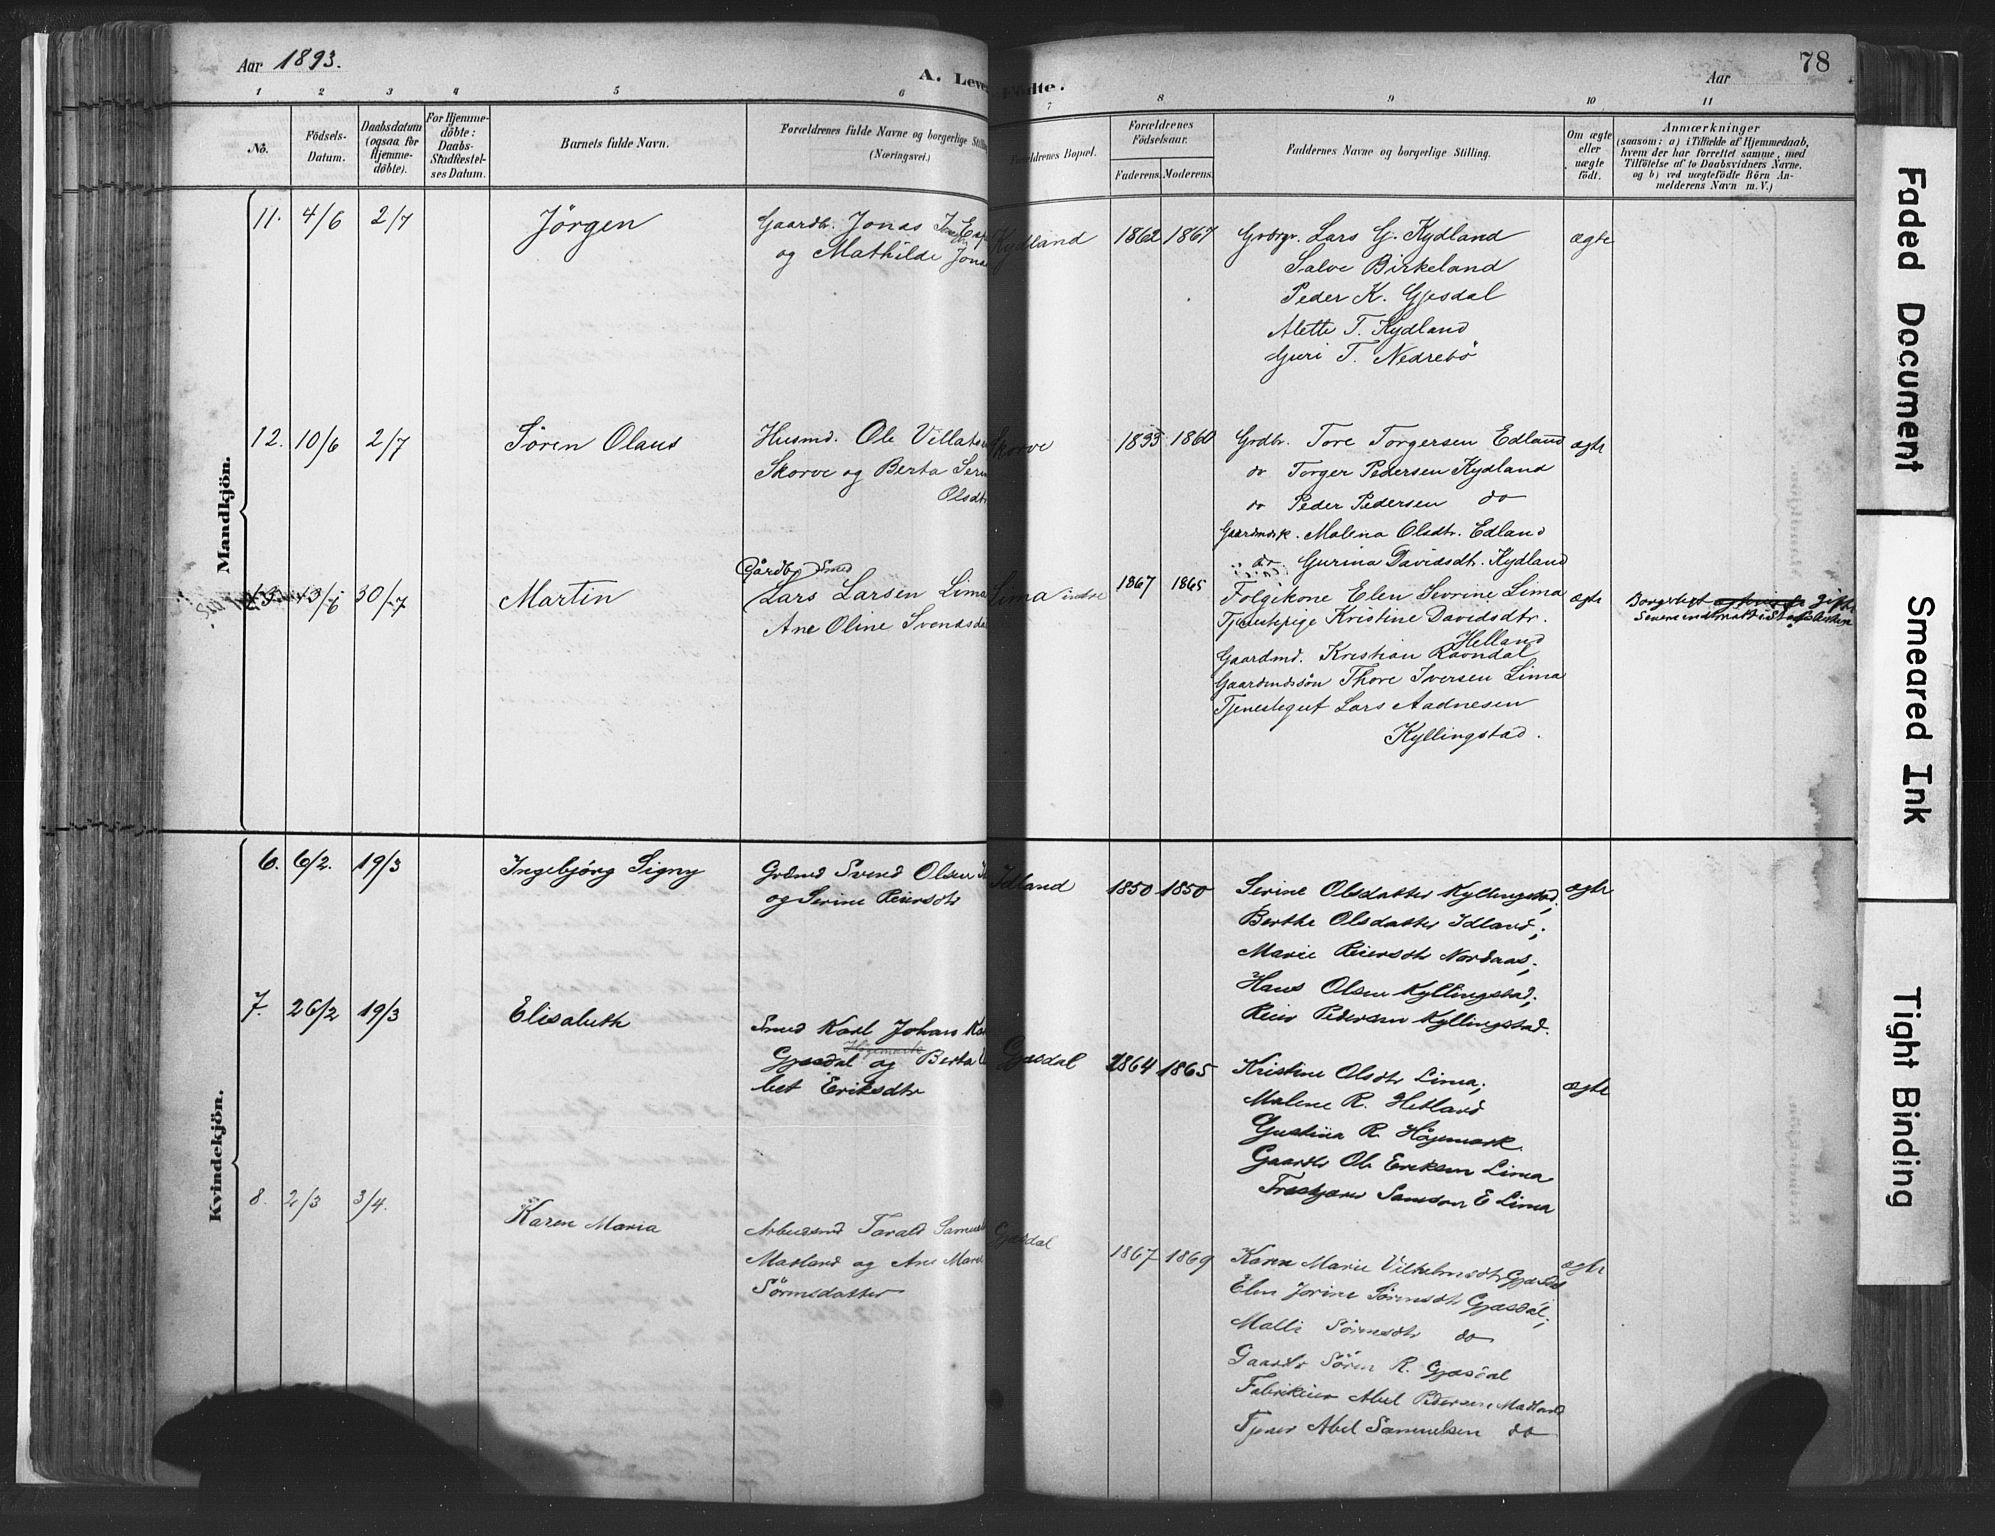 Aar 1893.
A. Leve
Födte.
Aar
78
1 2 3 4 5 6 7 8 9 10 11
No.
Födsels-
Datum.
Daabsdatum
(ogsaa for
Hjemme-
döbte).
For Hjemme-
döbte:
Daabs-
Stadfæstel-
ses Datum.
Barnets fulde Navn.
Forældrenes fulde Navne og borgerlige Stilling
(Næringsvei.)
Forældrenes Bopæl.
Forældrenes
Födselsaar.
Faderens. Moderens.
Faddernes Navne og borgerlige Stilling.
Om ægte
eller
uægte
födt.
Anmærkninger
(saasom: a) i Tilfælde af Hjemmedaab,
hvem der har forrettet samme, med
Tilföielse af to Daabsvidners Navne,
og b) ved uægtefödte Börn An-
melderens Navn m. V.)
Mandkjön.
11. 4/6 2/7
Jörgen
Gaardbr. Jonas
og Mathilde Jona
Kydland
1862 1867
Lars G. Kydland
Salve Birkeland
Peder K. Gjesdal
Alette T. Kydland
Guri T. Nedrebö
ægte
12. 10/6 2/7
Sören Olaus
Husmd. Ole Villats
Skorve og Berta Ser
Olsdtr
Skorve
1860
Grdbr. Tore Torgersen Edland
do Torger Pedersen Kydland
do Peder Pedersen do
Malena Olsdtr. Edland
do Gurina Davidsdtr. Kydland
ægte
13. 13/6 30/7
Martin
Gårdbr Smed
Lars Larsen Lima
Ane Oline Svendsd
Lima indre
1867 1865
Folgekone Elen Sevrine Lima
Tjenestepige Kristine Davidsdtr.
Helland
Gaardmd. Kristian Ravndal
Gaardmdssön Thore Iversen Lima
Tjenestegut Lars Aadnesen
Kyllingstad.
ægte
Borgerligt gift
Kvindekjön.
6. 6/2. 19/3
Ingebjörg Signy
Grdmd Svend Olsen
og Serine Reiersdtr
Idland
1850 1850
Serine Olsdatter Kyllingstad;
Berthe Olsdatter Idland;
Marie Reiersdtr Nordaas;
Hans Olsen Kyllingstad;
Reier Pedersen Kyllingstad.
ægte
7. 26/2 19/3
Elisabeth
Smed Karl Johan Ka
Höjemark
Gjesdal og Berta
bet Eriksdtr
Gjesdal
1864 1865
Kristine Olsdtr Lima;
Malene R. Hetland
Gustina R. Höjemark
Gaardbr Ole Eriksen Lima
Træskjærer Samson E Lima
ægte
8. 2/3 3/4.
Karen Maria
Arbeidsmd Tarald Samuel
Matland og Ane Mar
Sörensdatter
Gjesdal
1867 1869
Karen Marie Vilhelmsdtr Gjesdal
Elen Jorine Sörensdtr Gjesdal;
Malli Sörensdtr do
Gaardbr Sören R. Gjesdal
Fabrikeier Abel Pedersen Matland
Tjener Abel Samuelsen do
ægte
Faded Document
Smeared Ink
Tight Binding